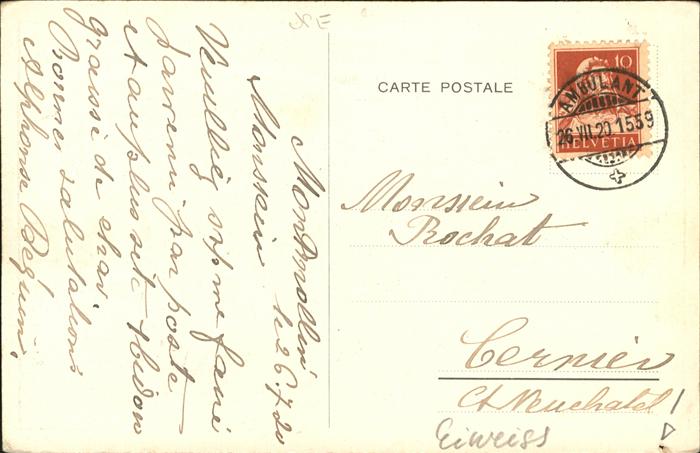 Montmollin
le 26.7.20
Monsieur
Veuillez svp me faire
parvenir par poste
et au plus vite 1 bidon
graisse de char
Bonnes salutations
Alphonse Béguin.
CARTE POSTALE
10
HELVETIA
AMBULANT
26.VII.20 1559
Monssieur
Rochat
Cernier
Ct Neuchatel !
Eiweiss